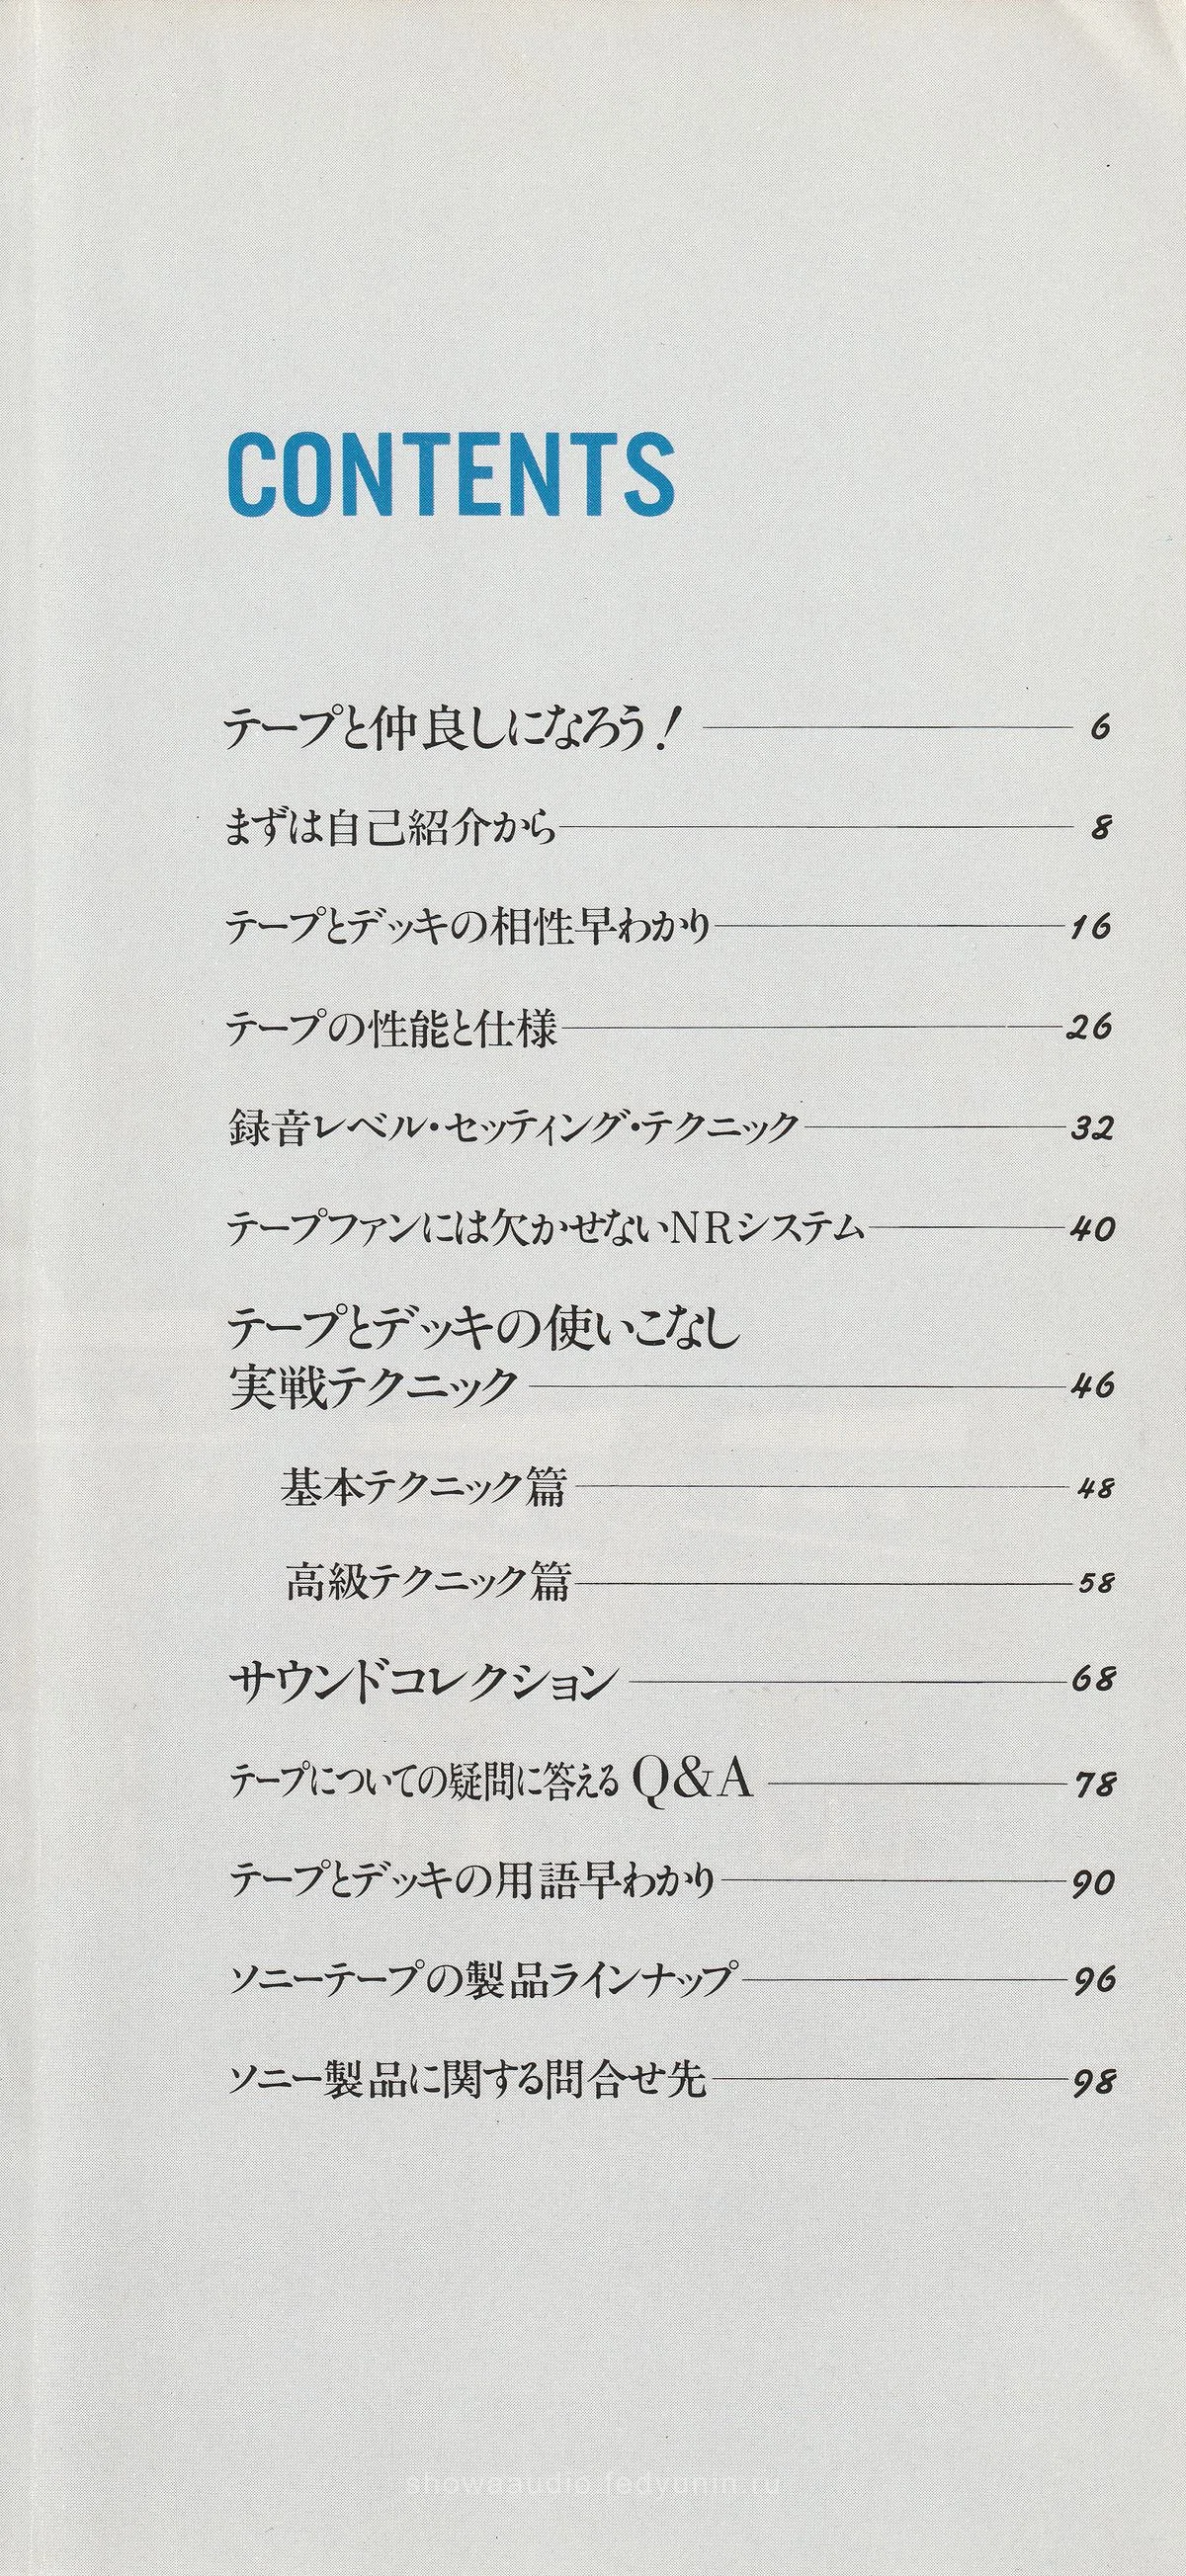 CONTENTS
テープと仲良しになろう! 6
まずは自己紹介から 8
テープとデッキの相性早わかり 16
テープの性能と仕様 26
録音レベル・セッティング・テクニック 32
テープファンには欠かせないNRシステム 40
テープとデッキの使いこなし
実戦テクニック 46
基本テクニック篇 48
高級テクニック篇 58
サウンドコレクション 68
テープについての疑問に答える Q&A 78
テープとデッキの用語早わかり 90
ソニーテープの製品ラインナップ 96
ソニー製品に関する問合せ先 98
showaaudio.fedyunin.ru